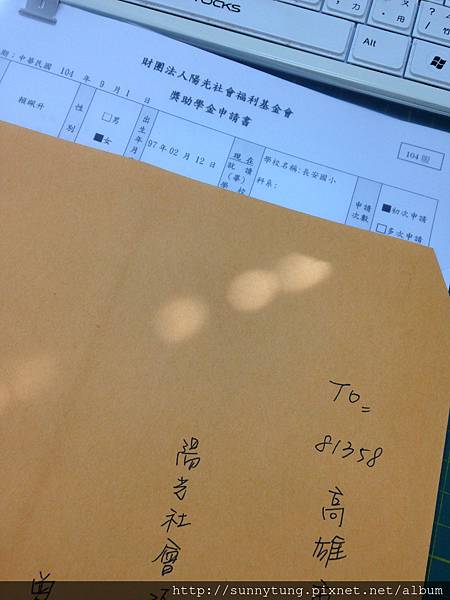 Alt
財團法人陽光社會福利基金會
獎助學金申請書
期：中華民國 104 年 9 月 1 日
104 版
性別
□男
■女
出生年月
97年02月12日
現在就讀(畢)學校
學校名稱：長安國小
科系：
申請次數
■初次申請
□多次申請
To=
81358
高雄
陽光社會
http://sunnytung.pixnet.net/album